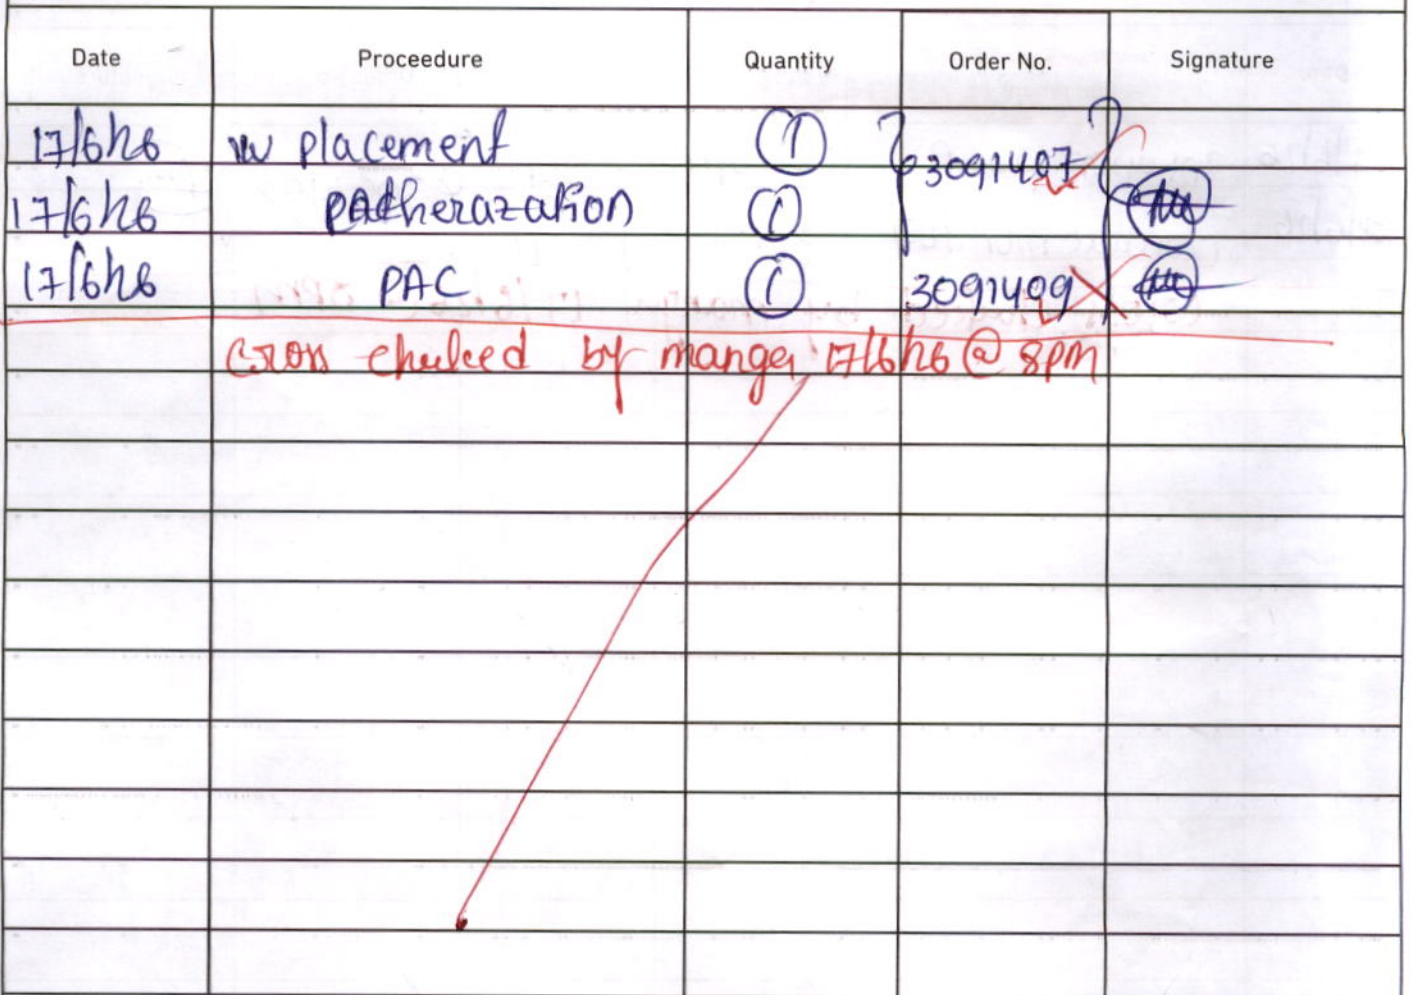 Date Proceedure Quantity Order No. Signature
17/6/26 IV placement 1 3091407
17/6/26 catherazation 1
17/6/26 PAC 1 3091409
cross cheked by manger 17/6/26 @ 8pm